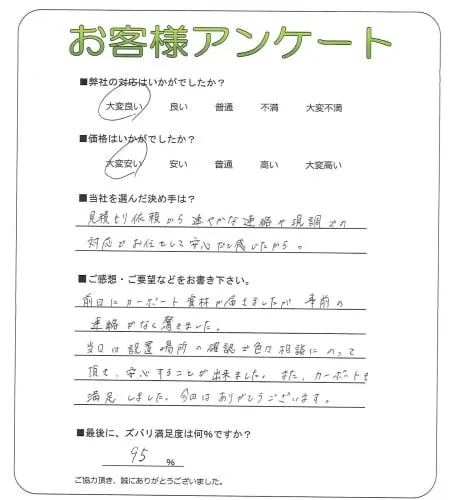 お客様アンケート
■弊社の対応はいかがでしたか？
大変良い 良い 普通 不満 大変不満
■価格はいかがでしたか？
大変安い 安い 普通 高い 大変高い
■当社を選んだ決め手は？
見積もり依頼から速やかな連絡や現調され
対応がお任せして安心だと感じたから。
■ご感想・ご要望などをお書き下さい。
前日にカーポート資材が届きましたが 事前の
連絡がなく驚きました。
当日は設置場所の確認で色々相談にのって
頂き、安心することが出来ました。また、カーポートも
満足しました。今回はありがとうございます。
■最後に、ズバリ満足度は何%ですか？
95 %
ご協力頂き、誠にありがとうございました。